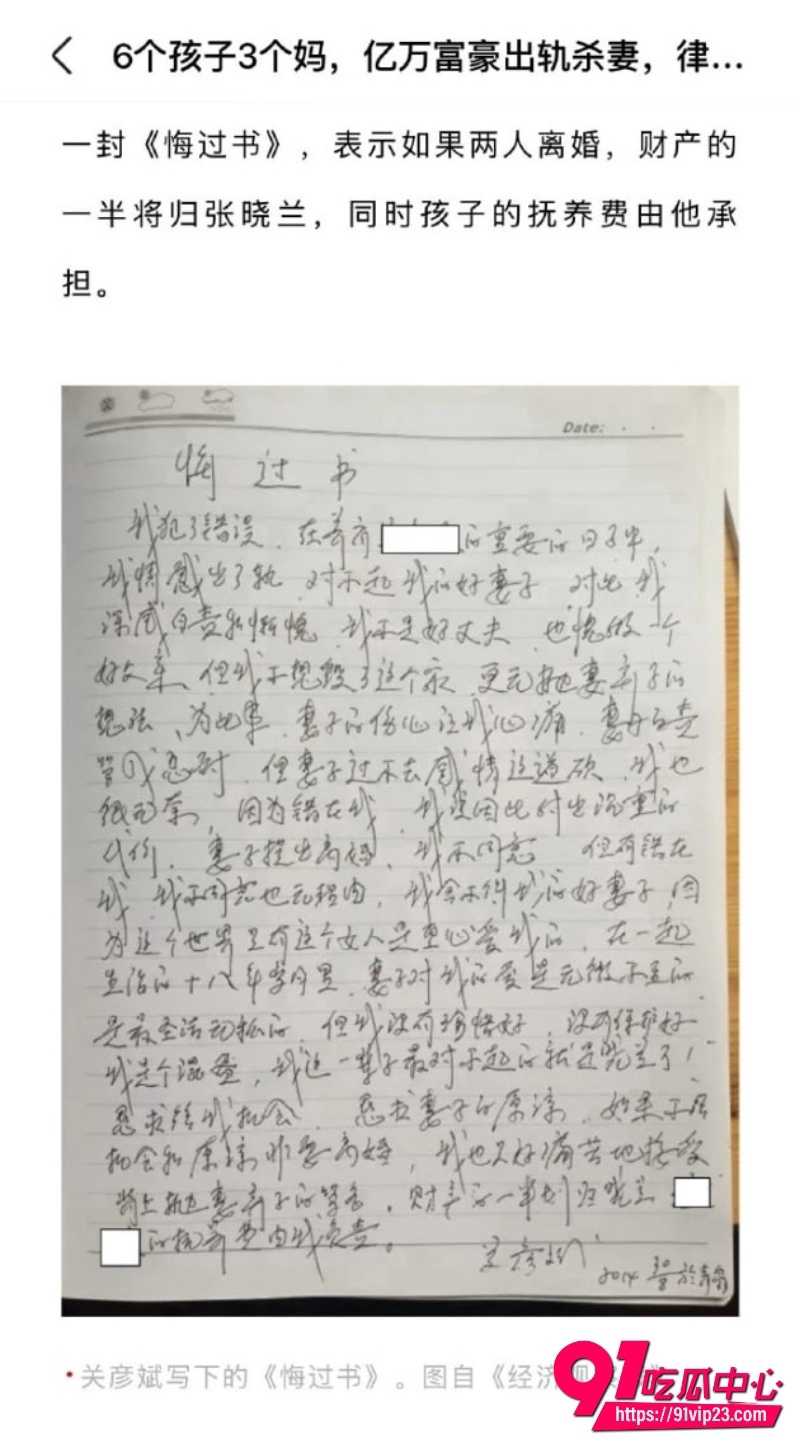 6个孩子3个妈，亿万富豪出轨杀妻，律...
一封《悔过书》，表示如果两人离婚，财产的
一半将归张晓兰，同时孩子的抚养费由他承
担。
Date:
悔过书
我犯了错误，在养育的重要的日子中，
我情感出了轨，对不起我的好妻子，对此我
深感自责和惭愧，我不是好丈夫，也愧做一个
好父亲，但我不想毁了这个家，更无抛妻弃子的
想法，为此事，妻子的伤心让我心痛，
但妻子过不去感情这道砍，我也
很无奈，因为错在我，我将因此付出沉重的
代价，妻子提出离婚，我不同意，但有错在
我，我不同意也无理由，我舍不得我的好妻子，因
为这个世界里有这个女人是真心爱我的，在一起
生活的十八年岁月里，妻子对我的爱是无微不至的
是最圣洁无私的，但我没有珍惜好，没有保护好
我是个混蛋，我这一辈子最对不起的就是晓兰了！
恳求给我机会，恳求妻子的原谅，如果不给
机会和原谅非要离婚，我也只好痛苦地接受
背上抛妻弃子的罪名，财产的一半划归晓兰
的抚养费由我负责。
关彦斌
2014
•关彦斌写下的《悔过书》。图自《经济
91吃瓜中心
https://91vip23.com